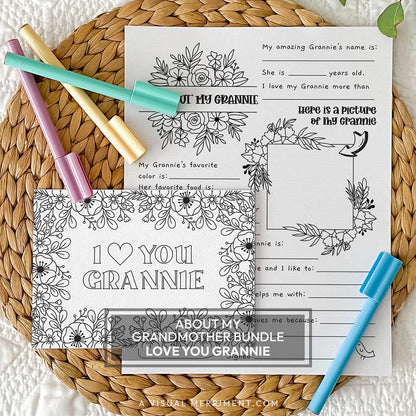 My amazing Grannie's name is:
She is ______ years old.
I love my Grannie more than
UT MY GRANNIE
Here is a picture
of my Grannie
My Grannie's favorite
color is:
Her favorite food is:
I ♡ YOU
GRANNIE
nnie is:
e and I like to:
elps me with:
ves me because:
ABOUT MY
GRANDMOTHER BUNDLE
LOVE YOU GRANNIE
Signed:
A VISUAL MERRIMENT.COM